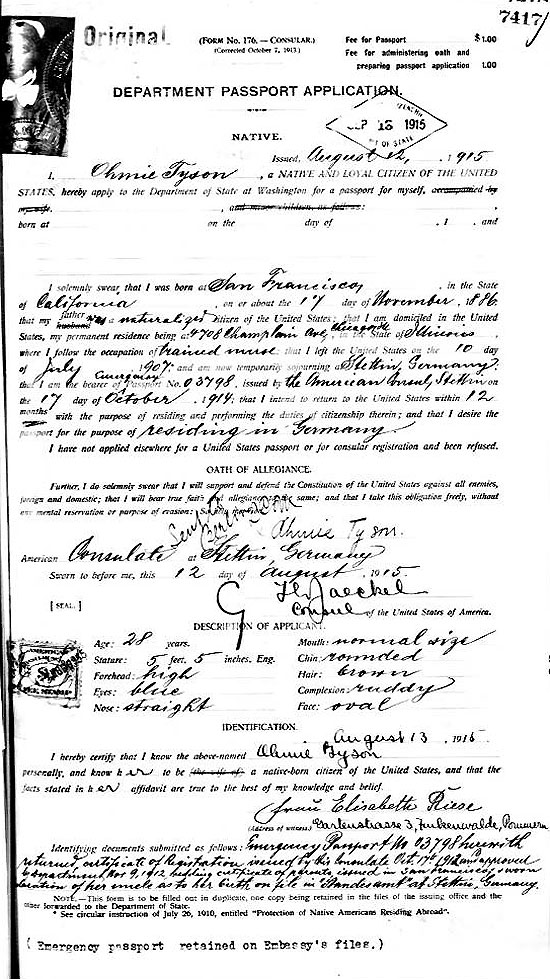 7417/
Original
(FORM NO. 176. — CONSULAR.)
(Corrected October 7, 1913.)
Fee for Passport $1.00
Fee for administering oath and
preparing passport application 1.00
DEPARTMENT PASSPORT APPLICATION.
SEP 13 1915
OF STATE
NATIVE.
Issued, August 12, 1915
I, Ohmie Tyson, a NATIVE AND LOYAL CITIZEN OF THE UNITED
STATES, hereby apply to the Department of State at Washington for a passport for myself, accompanied by
my wife, , and minor children, as follows: ,
born at on the day of , 1 , and
I solemnly swear that I was born at San Francisco, in the State
of California, on or about the 17 day of November, 1886
that my father husband was a naturalized citizen of the United States; that I am domiciled in the United
States, my permanent residence being at 4708 Champlain Ave, Chicago, in the State of Illinois
where I follow the occupation of trained nurse that I left the United States on the 10 day
of July 1907 and am now temporarily sojourning at Stettin, Germany
that I am the bearer of emergency Passport No. 03798, issued by the American Consul, Stettin on
the 17 day of October, 1914; that I intend to return to the United States within 12
months with the purpose of residing and performing the duties of citizenship therein; and that I desire the
passport for the purpose of residing in Germany
I have not applied elsewhere for a United States passport or for consular registration and been refused.
OATH OF ALLEGIANCE.
Further, I do solemnly swear that I will support and defend the Constitution of the United States against all enemies,
foreign and domestic; that I will bear true faith and allegiance to the same; and that I take this obligation freely, without
any mental reservation or purpose of evasion: So help me God.
Ohmie Tyson.
American Consulate at Stettin, Germany
Sworn to before me, this 12 day of August, 1915.
[SEAL.]
Jaeckel
Consul of the United States of America.
DESCRIPTION OF APPLICANT.
Age: 28 years. Mouth: normal size
Stature: 5 feet, 5 inches, Eng. Chin: rounded
Forehead: high Hair: brown
Eyes: blue Complexion: ruddy
Nose: straight Face: oval
IDENTIFICATION.
August 13, 1915
I hereby certify that I know the above-named Ohmie Tyson
personally, and know her to be (the wife of) a native-born citizen of the United States, and that the
facts stated in her affidavit are true to the best of my knowledge and belief.
Frau Elisabeth Riese
(Address of witness) Gartenstrasse 3, Finkenwalde, Pommern
Identifying documents submitted as follows: Emergency Passport No 03798 herewith
returned, certificate of Registration issued by this Consulate Oct. 17, 1912 and approved
Department Nov. 9, 1912, certificate of parents issued in San Francisco, sworn
declaration of her uncle as to her birth on file in Standesamt at Stettin, Germany.
NOTE.—This form is to be filled out in duplicate, one copy being retained in the files of the issuing office and the
other forwarded to the Department of State.
* See circular instruction of July 26, 1910, entitled "Protection of Native Americans Residing Abroad".
( Emergency passport retained on Embassy's files.)